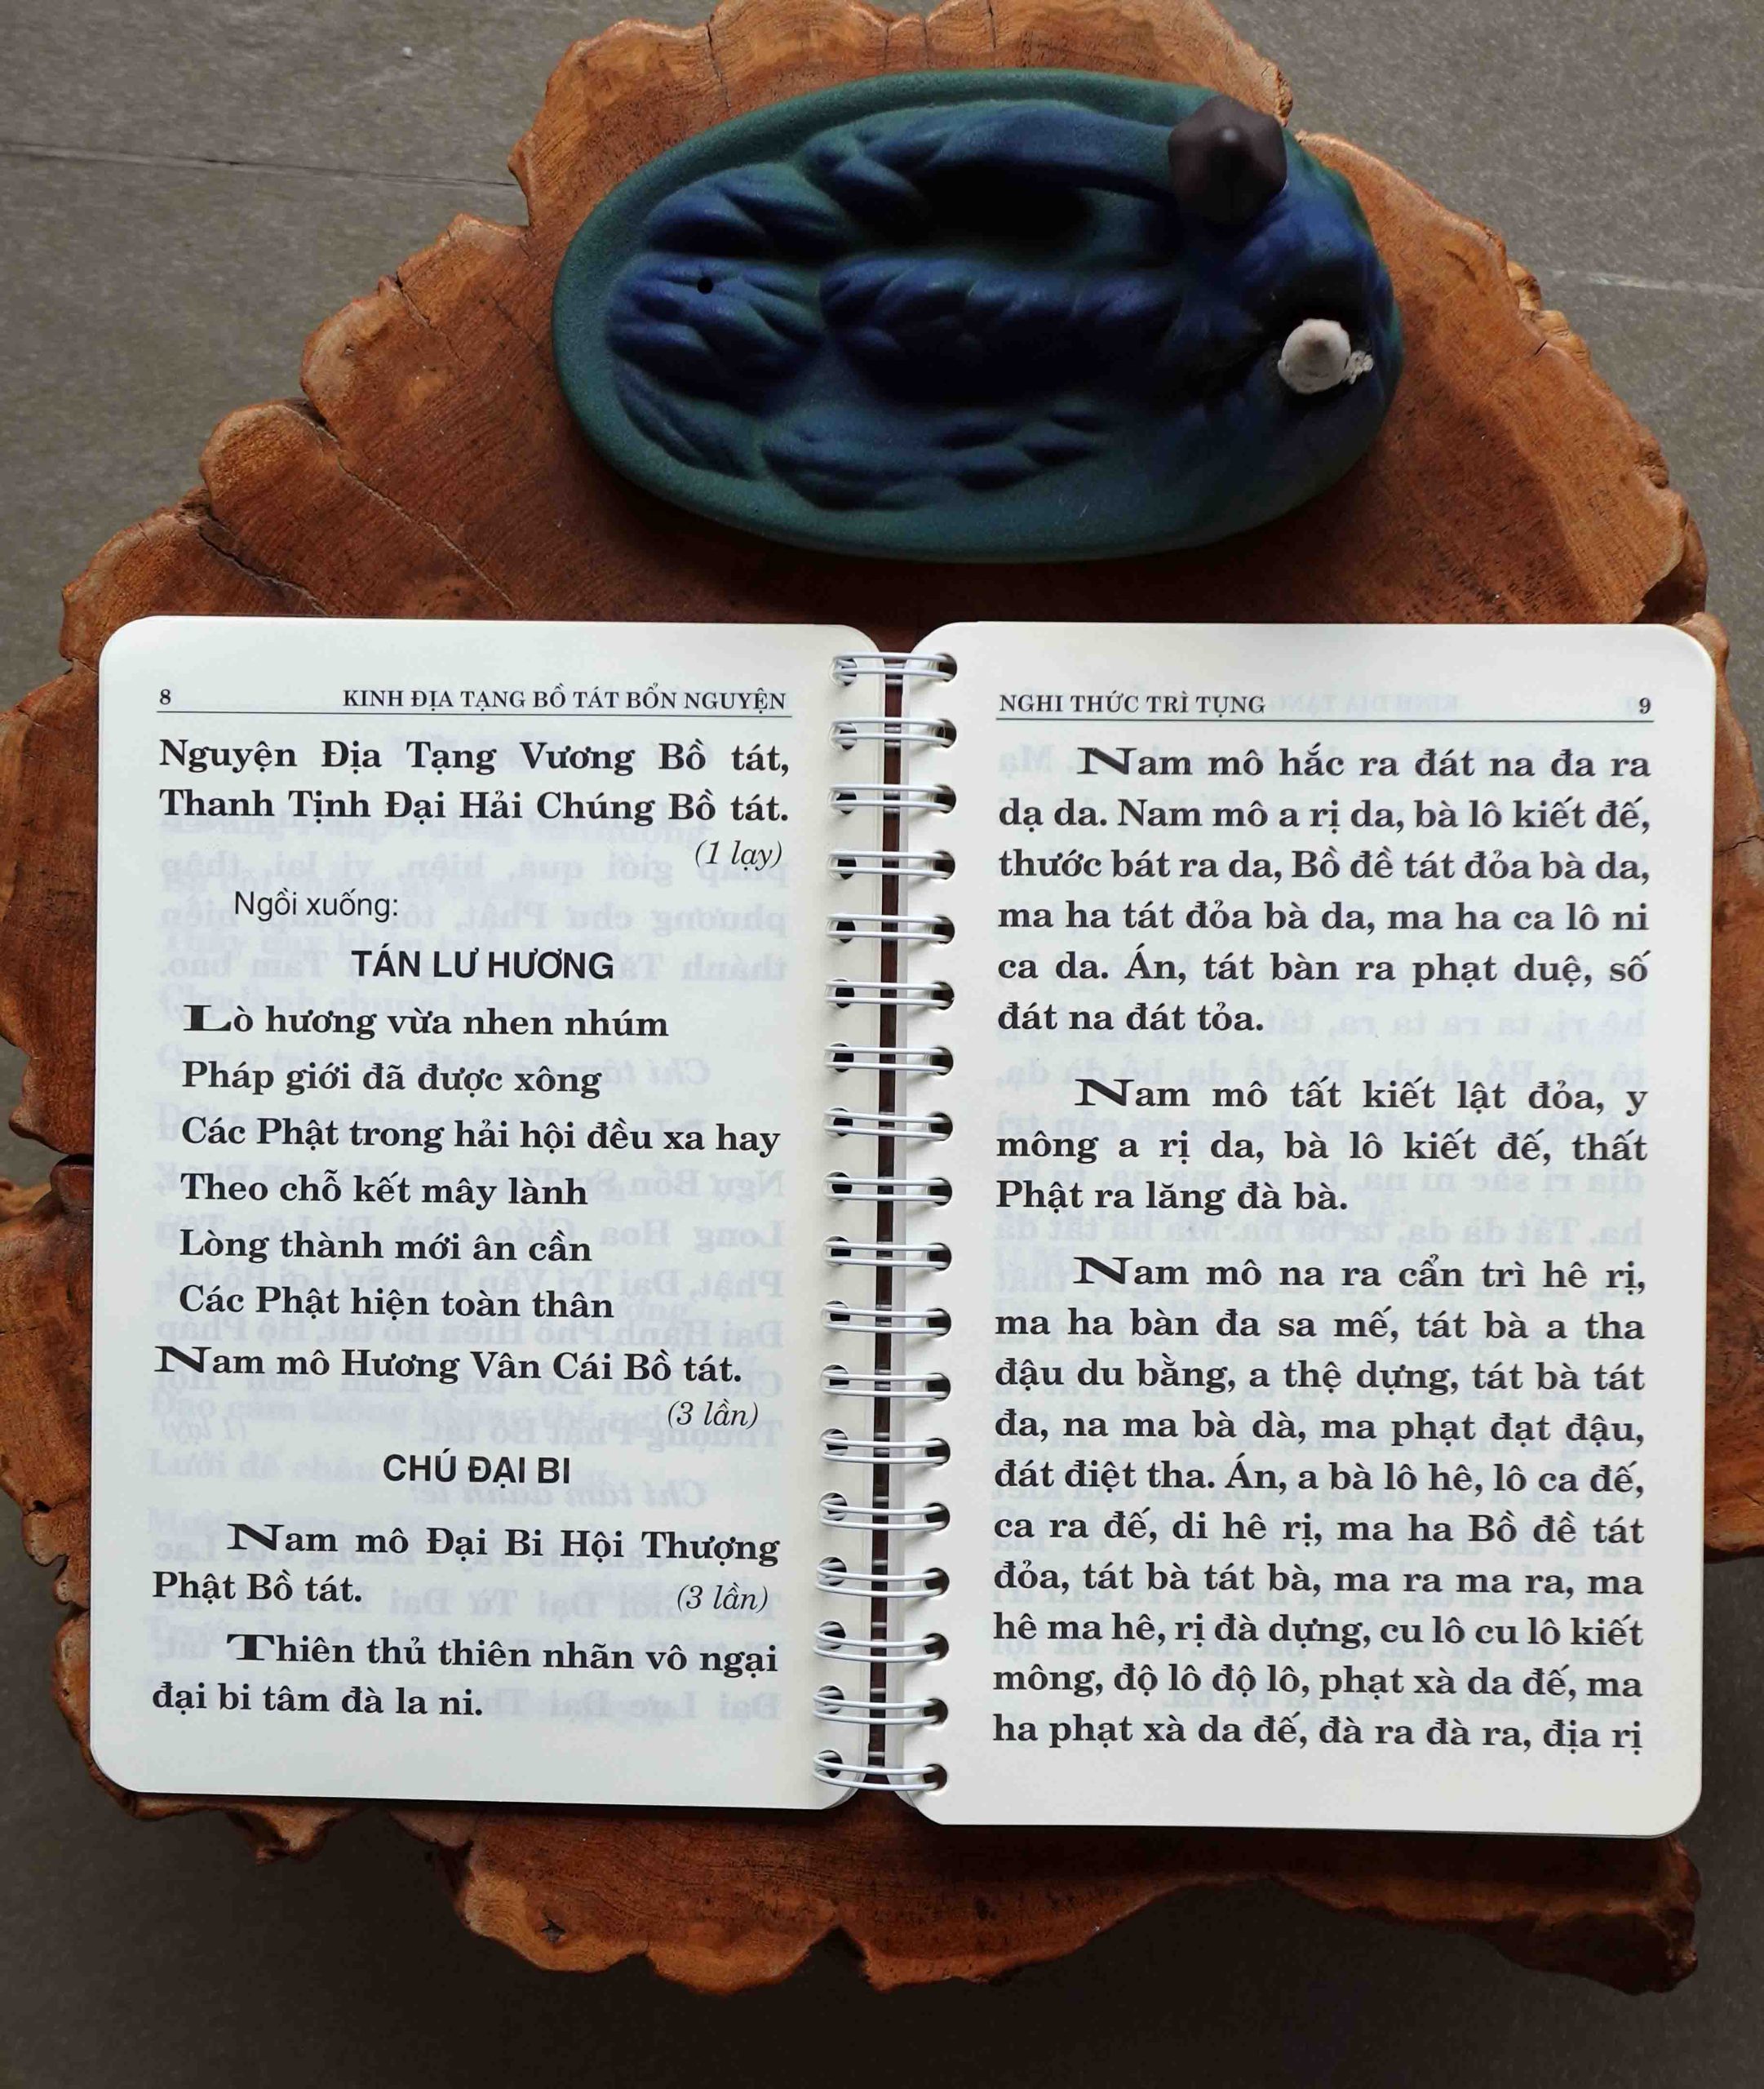 8 KINH ĐỊA TẠNG BỒ TÁT BỔN NGUYỆN
Nguyện Địa Tạng Vương Bồ tát,
Thanh Tịnh Đại Hải Chúng Bồ tát.
(1 lạy)
Ngồi xuống:
TÁN LƯ HƯƠNG
Lò hương vừa nhen nhúm
Pháp giới đã được xông
Các Phật trong hải hội đều xa hay
Theo chỗ kết mây lành
Lòng thành mới ân cần
Các Phật hiện toàn thân
Nam mô Hương Vân Cái Bồ tát.
(3 lần)
CHÚ ĐẠI BI
Nam mô Đại Bi Hội Thượng
Phật Bồ tát. (3 lần)
Thiên thủ thiên nhãn vô ngại
đại bi tâm đà la ni.
NGHI THỨC TRÌ TỤNG 9
Nam mô hắc ra đát na đa ra
dạ da. Nam mô a rị da, bà lô kiết đế,
thước bát ra da, Bồ đề tát đỏa bà da,
ma ha tát đỏa bà da, ma ha ca lô ni
ca da. Án, tát bàn ra phạt duệ, số
đát na đát tỏa.
Nam mô tất kiết lật đỏa, y
mông a rị da, bà lô kiết đế, thất
Phật ra lăng đà bà.
Nam mô na ra cẩn trì hê rị,
ma ha bàn đa sa mế, tát bà a tha
đậu du bằng, a thệ dựng, tát bà tát
đa, na ma bà dà, ma phạt đạt đậu,
đát điệt tha. Án, a bà lô hê, lô ca đế,
ca ra đế, di hê rị, ma ha Bồ đề tát
đỏa, tát bà tát bà, ma ra ma ra, ma
hê ma hê, rị đà dựng, cu lô cu lô kiết
mông, độ lô độ lô, phạt xà da đế, ma
ha phạt xà da đế, đà ra đà ra, địa rị